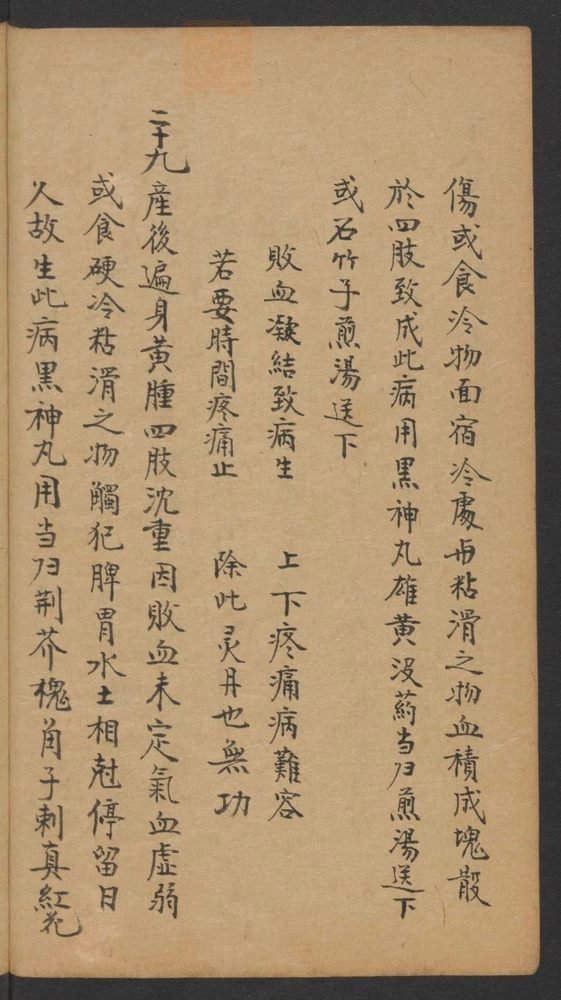 傷或食冷物面宿冷處毋粘滑之物血積成塊散
於四肢致成此病用黑神丸雄黄没药当归煎湯送下
或石竹子煎湯送下
敗血凝結致病生　上下疼痛病難容
若要時間疼痛止　除此灵丹也無功
二十九產後遍身黄腫四肢沈重因敗血未定氣血虛弱
或食硬冷粘滑之物觸犯脾胃水土相尅停留日
久故生此病黑神丸用当归荆芥槐角子刺真紅花